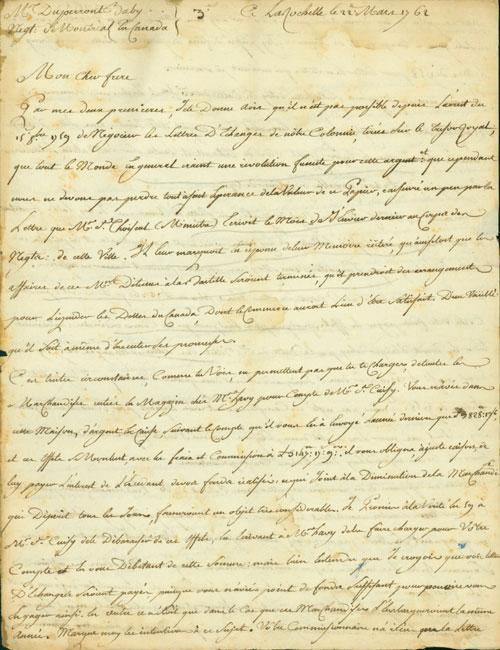 Mr. Duperront Baby
Negt. à Montréal en Canada
3e
La Rochelle le 22 Mars 1762
Mon cher frere
Par mes deux premieres, Je te donne avis qu'il n'est pas possible depuis L'arrest du
15 8bre 1759 de Negocier les Lettres D'Echanges de nôtre Colonnie, tirées sur le Tresor Royal,
que tout le Monde En general craint une revolution funeste pour cette argent et que cependant
nous ne devons pas perdre tout afait Esperance de la Valeur de ce Papier, rassurés un peu par la
Lettre que Mr. De Choiseul Ministre Ecrivit le Mois de Janvier dernier au Corps des
Negts. de cette Ville. Il leur marquoit en reponse de leur Memoire que aussitost que les
affaires de ces Mrs. Detenus à la Bastille Seroient terminées, qu'il prendroit des arrangements
pour Liquider les Dettes du Canada, Dont le Commerce auroit Lieu d'être Satisfait. Dieu Veuille
qu'il Soit à même d'Executer Ses promesses.
Ces tristes circonstances, Comme tu Vois, ne permettent pas que tu te charges de toutes les
Marchandises au Magazin chez Mr. Havy pour Compte de Mr. De Cuisy. Vous n'aviez dans
cette Maison, d'argent En Caisse Suivant le Compte qu'il vous a Envoyé L'année derniere que
et ces Effets Montent avec les fraix et Commission à il vous obligea à juste raison, de
luy payer L'interest de L'Excedant de vos fonds ce qui Joint à la Diminution de la Marchandise
qui Déperit tous les Jours, formeroient un objet tres considerable. Je
Mr. De Cuisy de le Débarasser de ces Effets, En Ecrivant à Mr. Havy de les faire charger pour Vôtre
Compte et de vous Débitant de cette Somme: mais bien Entendu que Je croyois que vos Lettres
D'Echanges Seroient payées, puisque vous n'aviez point de fonds Suffisant pour pouvoir vous
Engager ainsi. que dans le Cas que ces Marchandises S'Embarqueroient la même
année. Marque moy tes intentions à ce Sujet. Vôtre Commissionnaire n'a rien la Lettre